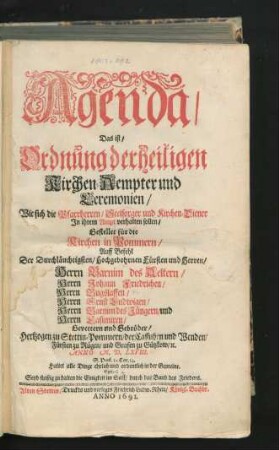 Agenda/
Das ist/
Ordnung der heiligen
Kirchen-Aempter und
Ceremonien/
Wie sich die Pfarrherren/ Seelsorger und Kirchen-Diener
In ihrem Ampt verhalten sollen/
Gestellet für die
Kirchen in Pommern/
Auff Befehl
Der Durchläuchtigsten/ Hochgebohrnen Fürsten und Herren/
Herrn Barnim des Aeltern/
Herrn Johann Friedrichen/
Herrn Bugslaffen/
Herrn Ernst Ludwigen/
Herrn Barnim des Jüngern und
Herrn Cassimiren/
Gevettern und Gebrüder/
Hertzogen zu Stettin-Pommern/ der Cassuben und Wenden/
Fürsten zu Rügen/ und Graffen zu Gützkow/ ꝛc.
ANNO M. D. LXVIII.
Lasset alle Dinge ehrlich und ordentlich in der Gemeine.
Seyd fleißig zu halten die Einigkeit im Geist/ durch das Band des Friedens.
Alten Stettin/ Druckts und verlegts Friederich Ludw. Rhete/ Königl. Buchdr.
ANNO 1691.